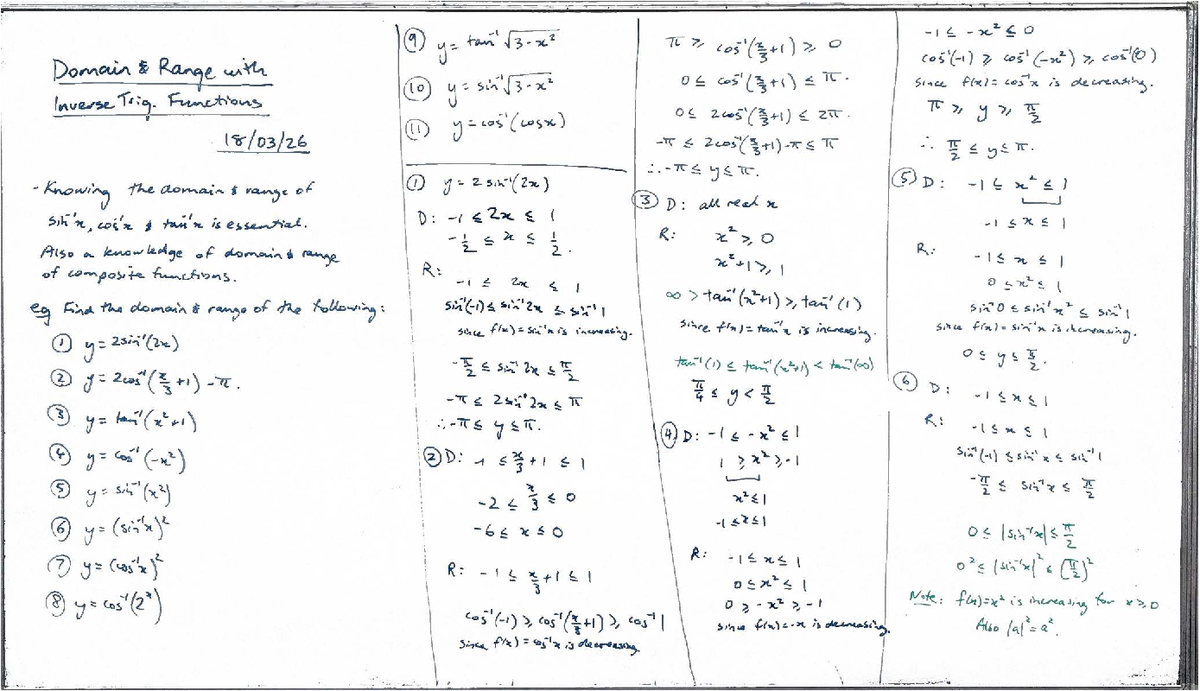 Domain & Range with
Inverse Trig. Functions
18/03/26
- Knowing the domain & range of
sin⁻¹x, cos⁻¹x & tan⁻¹x is essential.
Also a knowledge of domain & range
of composite functions.
eg Find the domain & range of the following:
① y = 2sin⁻¹(2x)
② y = 2cos⁻¹(x/3 + 1) - π.
③ y = tan⁻¹(x²+1)
④ y = cos⁻¹(-x²)
⑤ y = sin⁻¹(x²)
⑥ y = (sin⁻¹x)²
⑦ y = (cos⁻¹x)²
⑧ y = cos⁻¹(2ˣ)
⑨ y = tan⁻¹√(3-x²)
⑩ y = sin⁻¹√(3-x²)
⑪ y = cos⁻¹(cosx)
① y = 2 sin⁻¹(2x)
D: -1 ≤ 2x ≤ 1
-1/2 ≤ x ≤ 1/2.
R: -1 ≤ 2x ≤ 1
sin⁻¹(-1) ≤ sin⁻¹2x ≤ sin⁻¹1
since f(x) = sin⁻¹x is increasing.
-π/2 ≤ sin⁻¹2x ≤ π/2
-π ≤ 2sin⁻¹2x ≤ π
∴ -π ≤ y ≤ π.
② D: -1 ≤ x/3 + 1 ≤ 1
-2 ≤ x/3 ≤ 0
-6 ≤ x ≤ 0
R: -1 ≤ x/3 + 1 ≤ 1
cos⁻¹(-1) ≥ cos⁻¹(x/3 + 1) ≥ cos⁻¹1
since f(x) = cos⁻¹x is decreasing
π ≥ cos⁻¹(x/3 + 1) ≥ 0
0 ≤ cos⁻¹(x/3 + 1) ≤ π.
0 ≤ 2cos⁻¹(x/3 + 1) ≤ 2π.
-π ≤ 2cos⁻¹(x/3 + 1) - π ≤ π
∴ -π ≤ y ≤ π.
③ D: all real x
R: x² ≥ 0
x²+1 ≥ 1
∞ > tan⁻¹(x²+1) ≥ tan⁻¹(1)
since f(x) = tan⁻¹x is increasing.
tan⁻¹(1) ≤ tan⁻¹(x²+1) < tan⁻¹(∞)
π/4 ≤ y < π/2
④ D: -1 ≤ -x² ≤ 1
1 ≥ x² ≥ -1
x² ≤ 1
-1 ≤ x ≤ 1
R: -1 ≤ x ≤ 1
0 ≤ x² ≤ 1
0 ≥ -x² ≥ -1
since f(x) = -x is decreasing.
-1 ≤ -x² ≤ 0
cos⁻¹(-1) ≥ cos⁻¹(-x²) ≥ cos⁻¹(0)
since f(x) = cos⁻¹x is decreasing.
π ≥ y ≥ π/2
∴ π/2 ≤ y ≤ π.
⑤ D: -1 ≤ x² ≤ 1
-1 ≤ x ≤ 1
R: -1 ≤ x ≤ 1
0 ≤ x² ≤ 1
sin⁻¹0 ≤ sin⁻¹x² ≤ sin⁻¹1
since f(x) = sin⁻¹x is increasing.
0 ≤ y ≤ π/2.
⑥ D: -1 ≤ x ≤ 1
R: -1 ≤ x ≤ 1
sin⁻¹(-1) ≤ sin⁻¹x ≤ sin⁻¹1
-π/2 ≤ sin⁻¹x ≤ π/2
0 ≤ |sin⁻¹x| ≤ π/2
0² ≤ |sin⁻¹x|² ≤ (π/2)²
Note: f(x) = x² is increasing for x ≥ 0
Also |a|² = a².